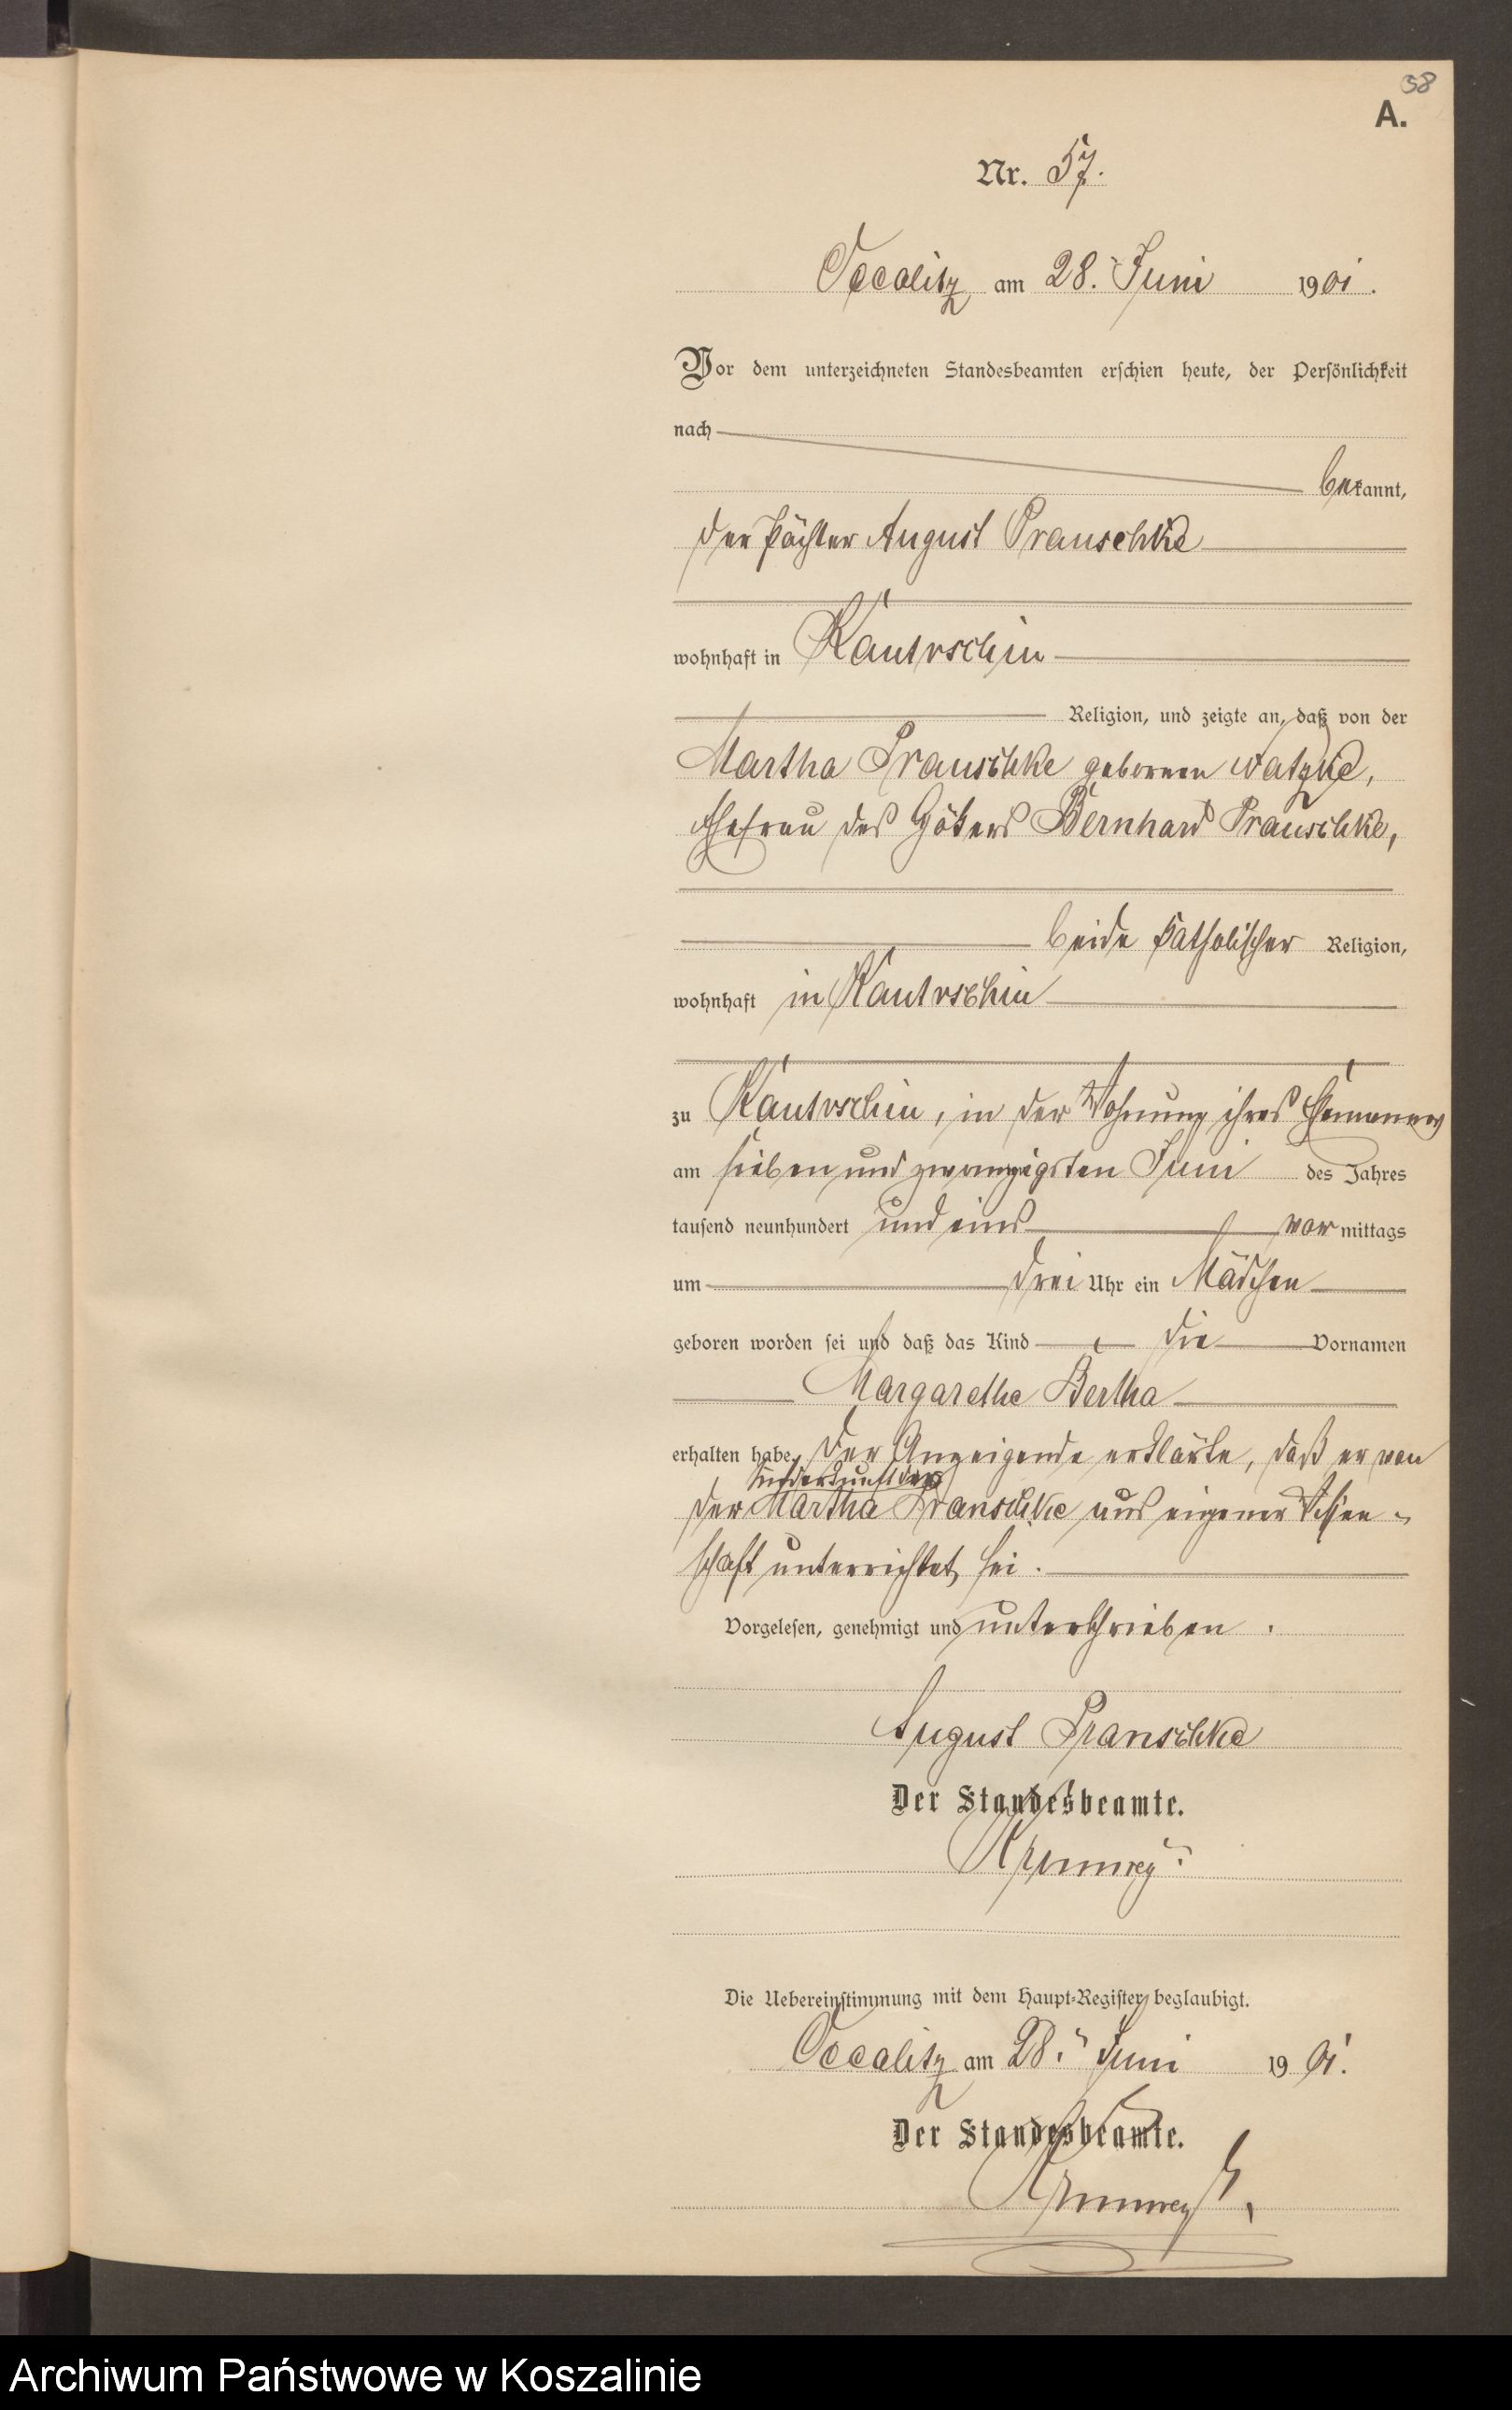 38
A.
Nr. 57.
Occalitz am 28. Juni 1901.
Vor dem unterzeichneten Standesbeamten erschien heute, der Persönlichkeit
nach
bekannt,
der Pächter August Prauschke
wohnhaft in Kantrschin
Religion, und zeigte an, daß von der
Martha Prauschke geborenen Watzke,
Ehefrau des Bernhard Prauschke,
beide katholischer Religion,
wohnhaft in Kantrschin
zu Kantrschin, in der Wohnung ihres Ehemannes
am sieben und zwanzigsten Juni des Jahres
tausend neunhundert und eins vor mittags
um drei Uhr ein Mädchen
geboren worden sei und daß das Kind die Vornamen
Margarethe Bertha
erhalten habe. Der Anzeigende erklärte, daß er von
Niederkunft der
der Martha Prauschke aus eigener Wissen-
schaft unterrichtet sei.
Vorgelesen, genehmigt und unterschrieben.
August Prauschke
Der Standesbeamte.
Die Uebereinstimmung mit dem Haupt-Register beglaubigt.
Occalitz am 28. Juni 1901.
Der Standesbeamte.
Archiwum Państwowe w Koszalinie